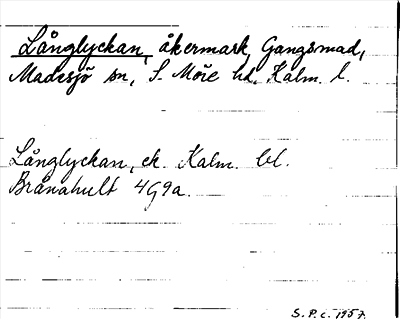 Långlyckan, åkermark, Gangsmad,
Madesjö sn, S. Möre hd, Kalm. l.
Långlyckan, ek. Kalm. bl.
Brånahult 4G9a.
S.P.c. 1957.